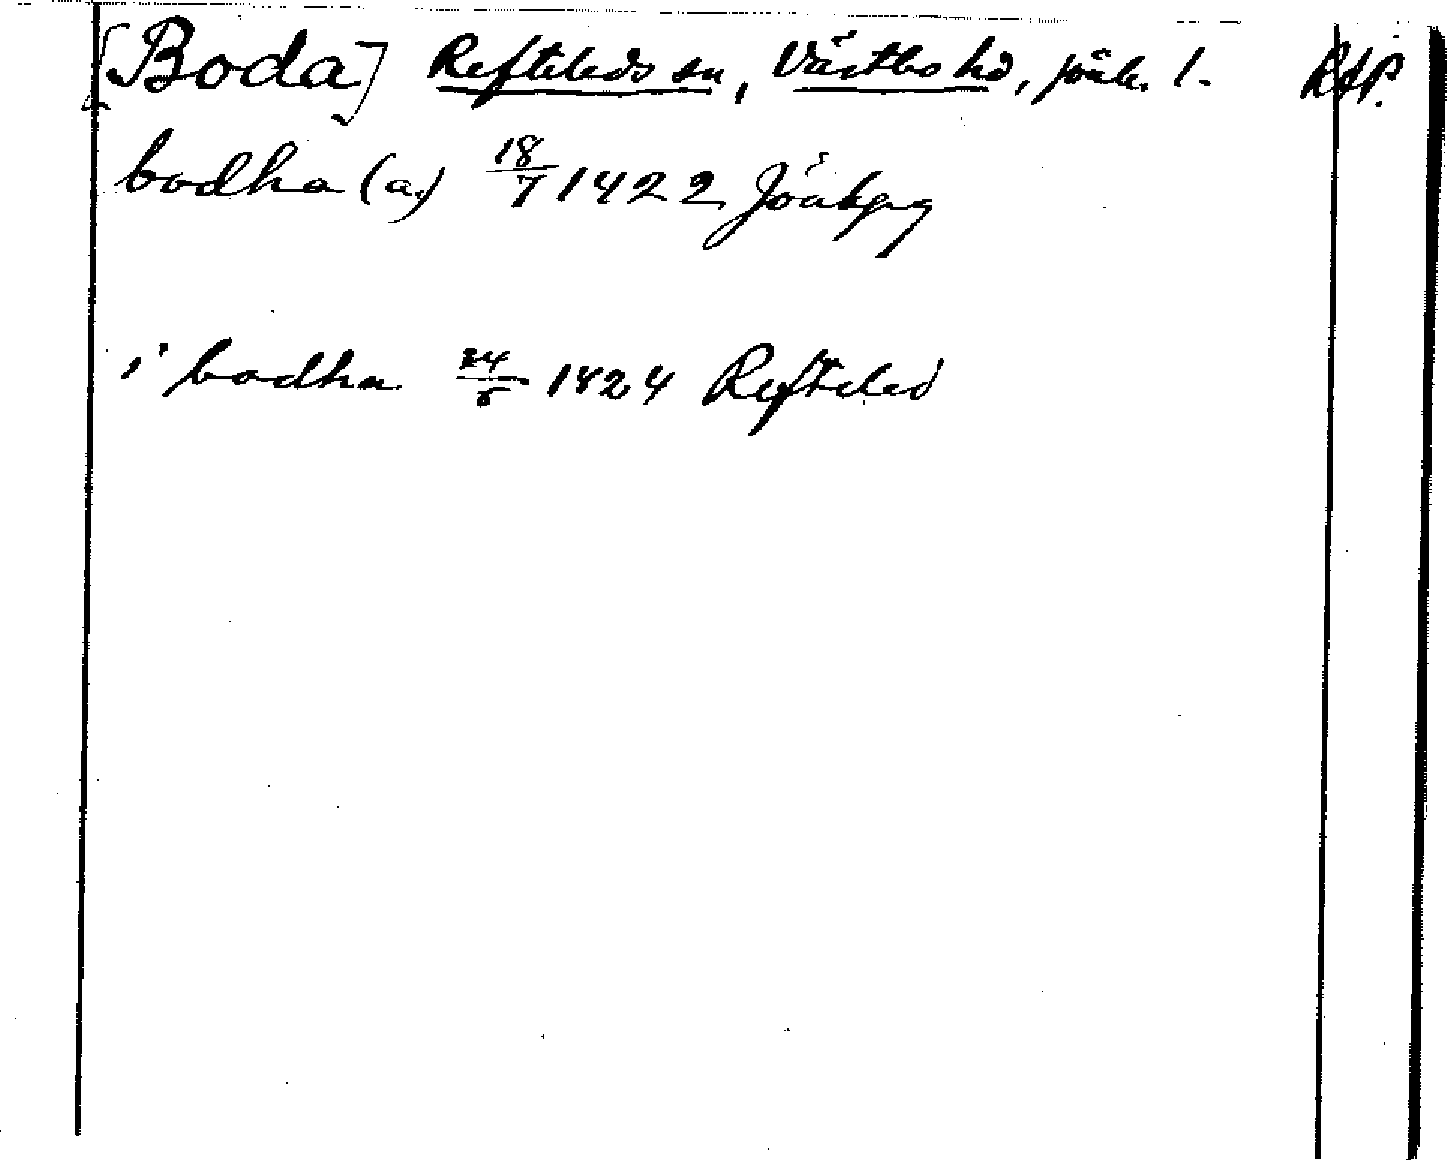 [Boda] Refteleds sn, Västbo hd, Jönk. l. RAP.
bodha (a.) 18/7 1422 Jönkpg
i bodha 24/6 1424 Refteled